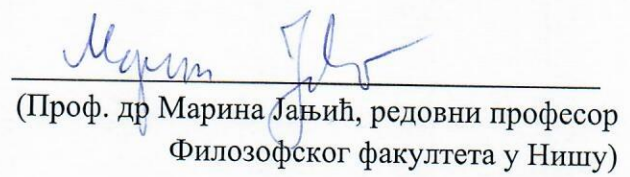 (Проф. др Марина Јањић, редовни професор
Филозофског факултета у Нишу)